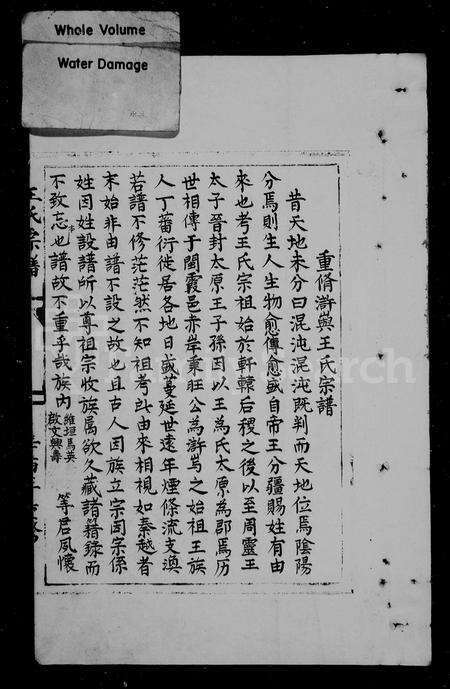 Whole Volume
Water Damage
重脩滸嶴王氏宗譜
昔天地未分曰混沌混沌既判而天地位焉陰陽
分焉則生人生物愈傳愈盛自帝王分疆賜姓有由
來也考王氏宗祖始於軒轅后稷之後以至周靈王
太子晉封太原王子孫因以王為氏太原為郡焉历
世相傳于閩霞邑赤岸秉旺公為滸嶴之始祖王族
人丁蕃衍徙居各地日盛蔓延世遠年煙條流支演
若譜不修茫茫然不知祖考出由來相視如秦越者
末始非由譜不設之故也且古人因族立宗因宗係
姓因姓設譜所以尊祖宗收族屬欲久藏諸籍錄而
不致忘也譜故不重乎哉族內維垣馬英啟文興壽等君風懷
王氏宗譜